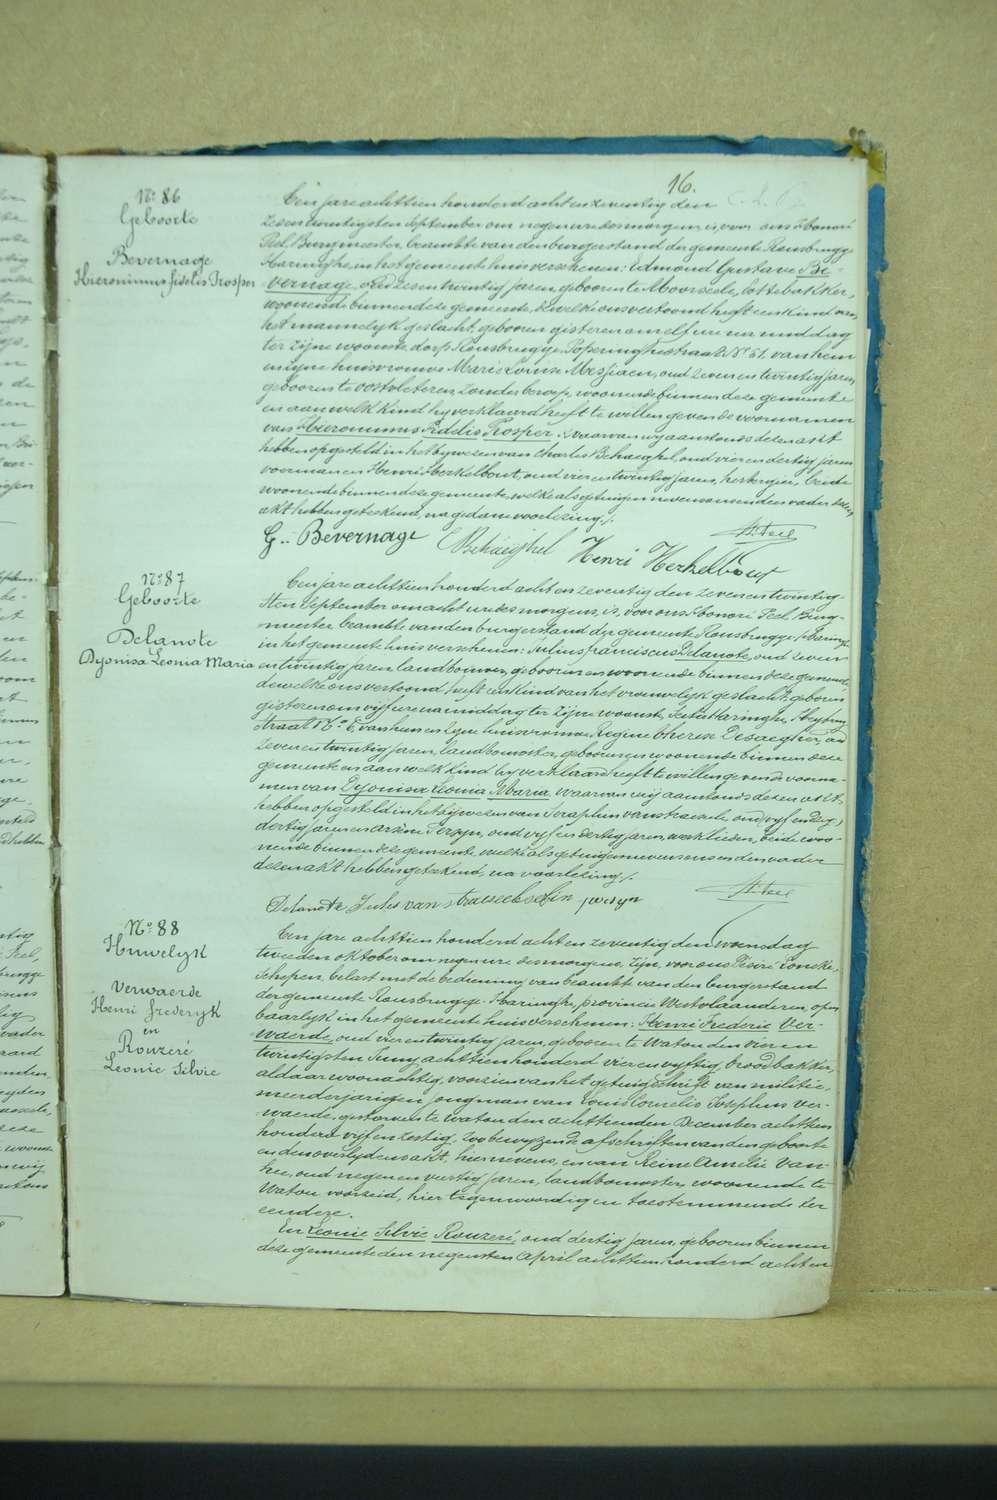 16.
N° 86
Geboorte
Bevernage
Hieronimus fidelis Prosper
Een jare achttien honderd acht en zeventig den
zes en twintigsten September om negen ure des morgens, is, voor ons Honoré
Peel, Burgmeester, beambte van den burgerstand der gemeente Rousbrugge
Haringhe, in het gemeente huis verschenen: Edmond Gustave Be-
vernage, oud zes en twintig jaren, geboren te Moorseele, lottebakker,
woonende binnen deze gemeente, dewelke ons vertoond heeft een kind van
het mannelijk geslacht, geboren gisteren om elf ure voor middag
ter zijne woonste, dorp Rousbrugge, Poperinghestraat N° 61. van hem
en zijne huisvrouwe Marie Louise Messiaen, oud zeven en twintig jaren,
geboren te Oostvleteren, zonder beroep, woonende binnen deze gemeente
en aan welk kind hij verklaard heeft te willen geven de voornamen
van Hieronimus Fidelis Prosper. Waarvan wij aanstonds dezen akt
hebben opgesteld in het bijwezen van Charles Behaeghel, oud vier en dertig jaren
voerman en Henri Herkelbout, oud vier en twintig jaren, herbergier, beide
woonende binnen deze gemeente, welke als getuigen nevens ons en den vader dezen
akt hebben geteekend, na gedane voorlezing.
G. Bevernage Behaeghel Henri Herkelbout H. Peel
N° 87
Geboorte
Delanote
Dyonisa Leonia Maria
Een jare achttien honderd acht en zeventig den zeven en twintig-
sten September om acht ure des morgens, is, voor ons Honoré Peel, Burg-
meester beambte van den burgerstand der gemeente Rousbrugge-Haringhe
in het gemeente huis verschenen: Julius franciscus Delanote, oud zeven
en twintig jaren, landbouwer, geboren en woonende binnen deze gemeente,
dewelke ons vertoond heeft een kind van het vrouwelijk geslacht, geboren
gisteren om vijf ure namiddag ter zijne woonst, Sectie Haringhe,
straat N° van hem en zijne huisvrouwe Regina Theresia Desaegher, oud
zeven en twintig jaren, landbouwster, geboren en woonende binnen deze
gemeente en aan welk kind hij verklaard heeft te willen geven de voorna-
men van Dyonisa Leonia Maria, waarvan wij aanstonds dezen akt
hebben opgesteld in het bijwezen van Seraphin vanstraeseele, oud vijf en
dertig jaren en Persyn, oud vijf en dertig jaren, werklieden, beide woo-
nende binnen deze gemeente, welke als getuigen nevens ons en den vader
dezen akt hebben geteekend, na voorlezing.
Delanote Jules van straeseele Persyn H. Peel
N° 88
Huwelyk
Verwaerde
Henri frederyk
en
Rouzeré
Leonie Silvie
Een jare achttien honderd acht en zeventig den woensdag
tweeden oktober om negen ure des morgens, zijn, voor ons Désiré
Schepen, belast met de bediening van beambte van den burgerstand
der gemeente Rousbrugge-Haringhe, provincie Westvlaanderen, open
baarlyk in het gemeente huis verschenen: Henri Frederic Ver-
waerde, oud vier en twintig jaren, geboren te Watou den vier en
twintigsten Juny achttien honderd vier en vyftig, broodbakker,
aldaar woonachtig, voorzien van het getuigschrift van militie,
meerderjarigen jongman van Louis Cornelis Josephus Ver-
waerde, gestorven te Watou den achttienden December achttien
honderd vijf en zestig, zoo bewyzen de afschriften van den geboorte
en den overlydens akt, hiernevens, en van Reine Amelie Van-
hee, oud negen en veertig jaren, landbouwster, woonende te
Watou voorzeid, hier tegenwoordig en toestemmende ter
eendere.
En Leonie Silvie Rouzeré, oud dertig jaren, geboren binnen
deze gemeente den negensten April achttien honderd acht en